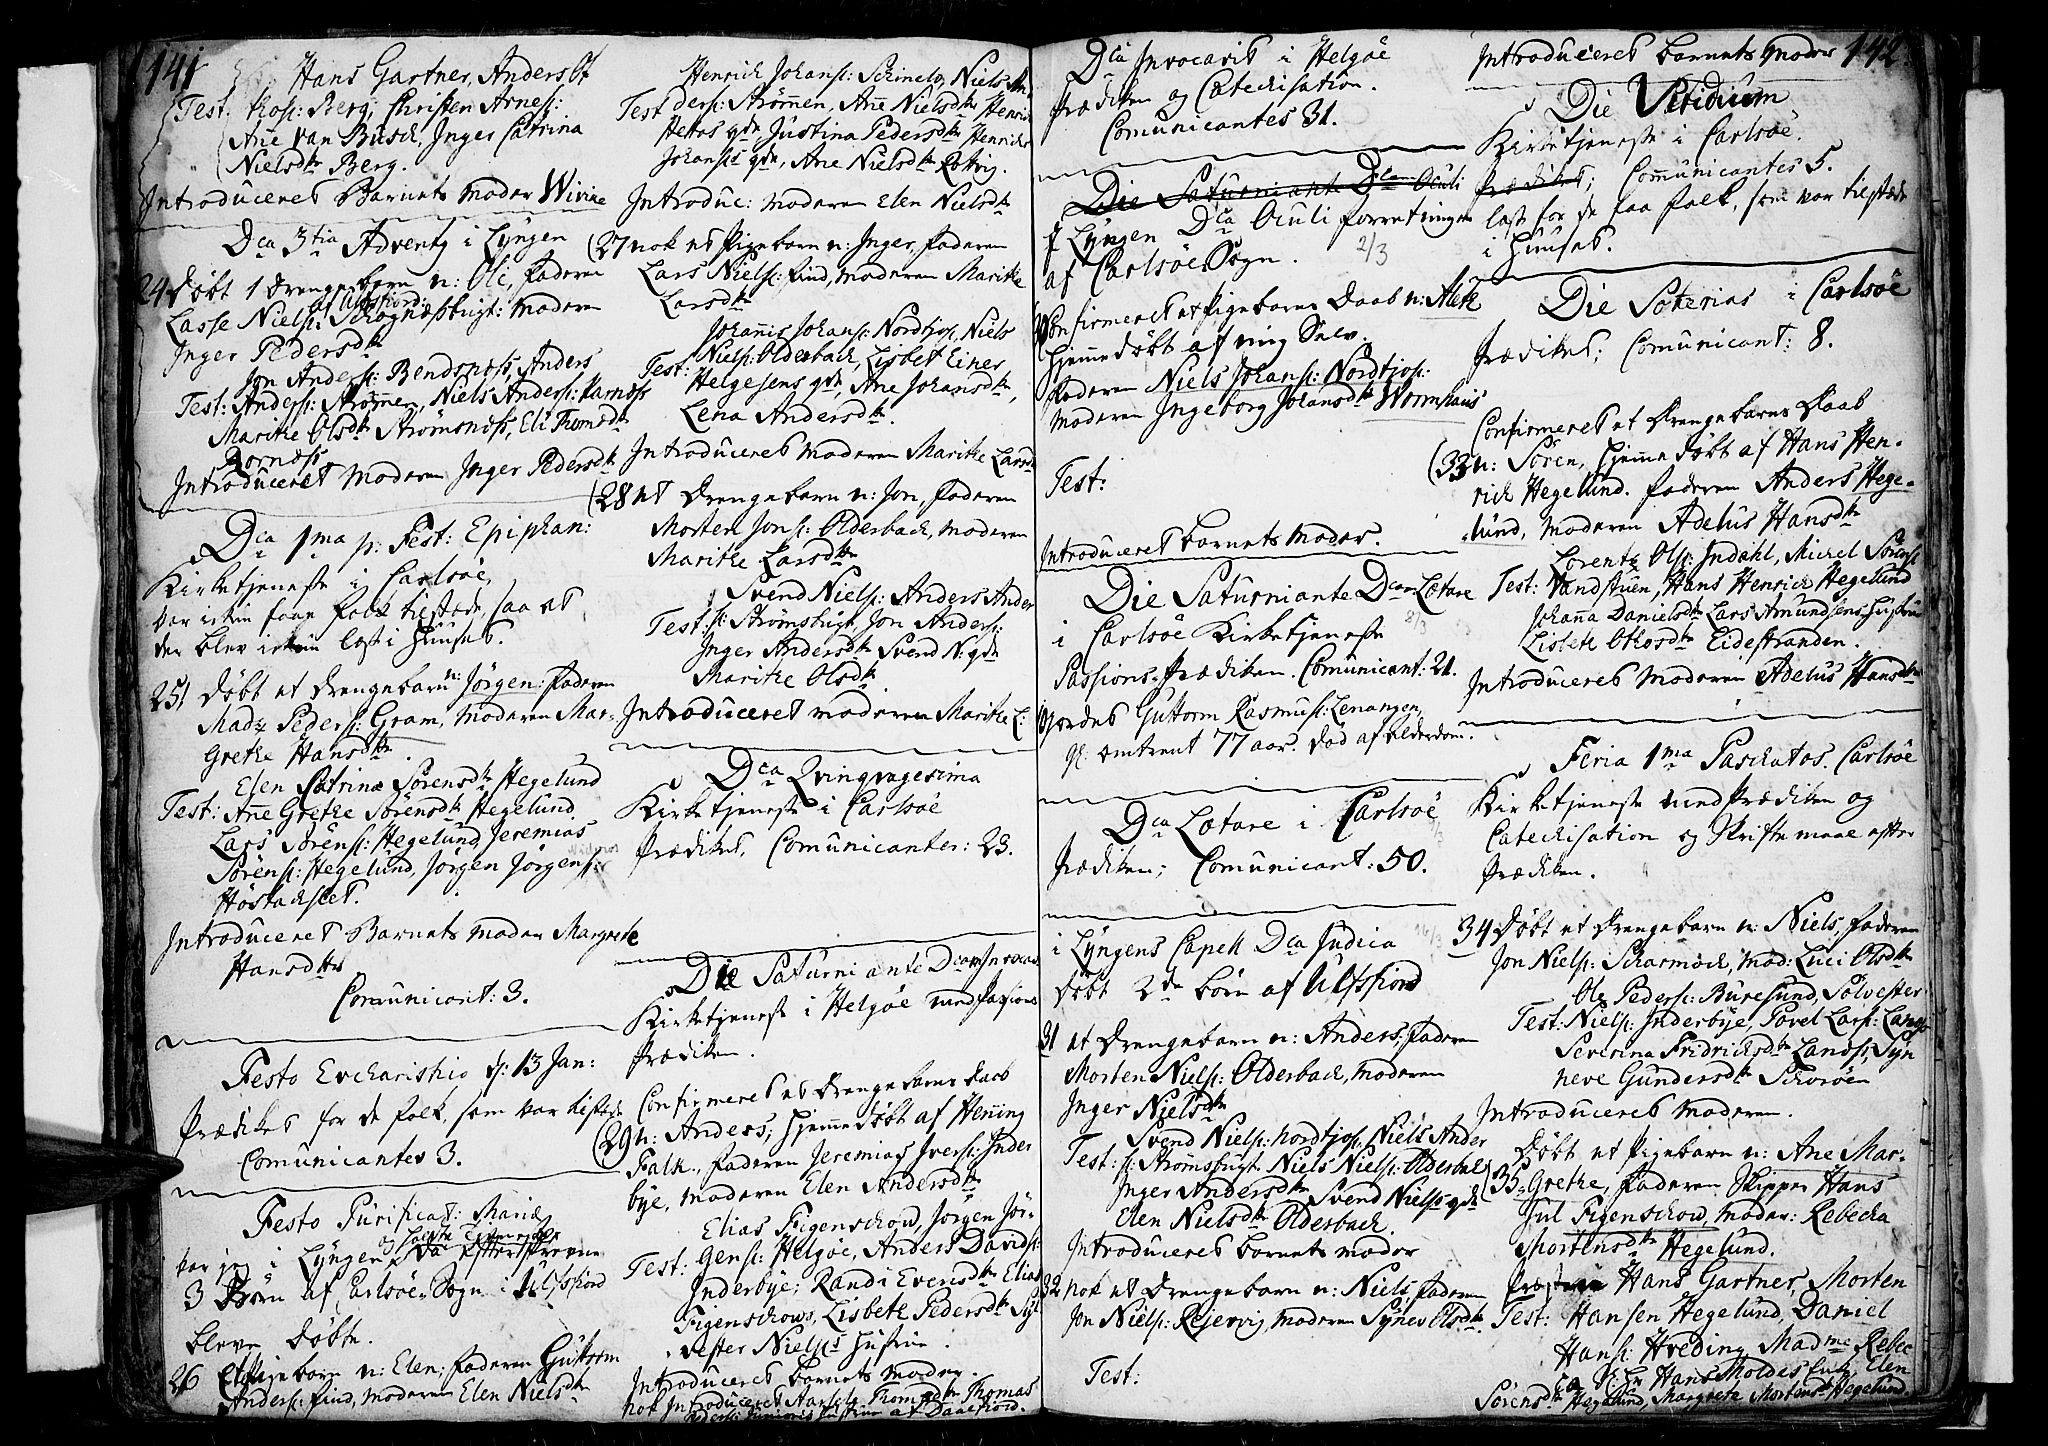 141
Hans Gartner, Anders Ot
Test: thos: Berg; Christen Arnes:
Ane Van Busch, Inger Catrina
Nielsdtr Berg.
Introduceret Barnets Moder Wivike
Dca 3tia Advents i Lyngen
24 døbt 1 drengebarn n: Ole, faderen
af Ulsfiord:
Lasse Niels: Schognæsbugt: moderen
Inger Pedersdtr
Jon Anders: Bendsnoss, Anders
Test: Anders: Strømmen, Niels Anders: Karnøss
Maritke Olsdtr Strømsnoss, Eli Thomsdtr
Rornæss
Introduceret Moderen Inger Pedersdtr
Dca 1ma p: Fest: Epiphan:
Kirketjeneste i Carlsøe,
var ikun faae folk tilstede, saa at
der blev ikun læst i Huuset.
25 døbt et drengebarn n: Jørgen: faderen
Madz Peders: Gram, Moderen Mar-
Grethe Hansdtr.
Elen Catrina Sørensdtr Hegelund
Test: Ane Grethe Sørensdtr Hegelund
Lars Sørens: Hegelund, Jeremias
Sørens: Hegelund, Jørgen Jørgens:
Høstachset.
Introduceret Barnets Moder Margrete
Hansdtr
Comunicant: 3.
Festo Evcharistio d: 13 Jan:
Prædiket for de folk, som var tilstede
Comunicantes 3.
Festo Purificat: Mariæ
var jeg i Lyngen, da efterskrevne
3 Børn af Carlsøe Sogn i Ulssfiord
bleve døbte.
26 Et Pigebarn n: Elen; faderen Guttorm
Anders: find, Moderen Elen Nielsdtr
Henrich Johans: Schinelv, Niels An
Test ders: Strømmen, Ane Nielsdtr Henrich
Hetas qde, Justina Pedersdtr Henrich
Johans:s qde, Ane Nielsdtr Rotvig.
Introduc: moderen Elen Nielsdtr
27 nok et Pigebarn n: Inger, faderen
Lars Niels: find, moderen Maritke
Larsdtr
Johannis Johans: Nordtjos, Niels
Niels: Olderbach, Lisbet Einer
Test: Helgesens qde, Ane Johansdtr,
Lena Andersdtr.
Introduceret Moderen Maritke Larsd
28 et drengebarn n: Jon, faderen
Morten Jons: Olderbach, moderen
Maritke Larsdtr
Svend Niels: Anders Ander
Test: s: Strømsbugt, Jon Anders:
Inger Andersdtr Svend N: qde
Maritke Olsdtr.
Introduceret moderen Maritke L:
Dca Qvinqvagesima
Kirketjeneste i Carlsøe
Prædiket, Comunicanter: 23.
Die Saturni ante Dcam Invocav
Kirketjeneste i Helgøe med Passions
Prædiken.
Confirmeret et drengebarns daab
29 n: Anders; hjemmedøbt af Hening
Falk., faderen Jeremias Ivers: Inder
bye, moderen Elen Andersdtr
Elias Figenschow, Jørgen Jør-
Test: Gens: Helgøe, Anders Davids:
Inderbye; Randi Evensdtr Elias
Figenschows, Lisbeth Pedersdtr Syl
vester Niels:s hustrue.
Introduceret barnets moder.
nok Introduceret Thomsdtr Thomas
Peders: hustrue af Daaefiord.
Dca Invocavit i Helgøe
Prædiken og Catechisation.
Comunicantes 31.
Die Saturni ante Dcam Oculi
I Lyngen Dca Oculi forretninger
af Carlsøe Sogn. 2/3
30 Confirmeret et Pigebarns Daab n: Aleth
hjemmedøbt af mig Selv.
Faderen Niels Johans: Nordtjos:
Moderen Ingeborg Johansdtr Wormhuus
Test:
Introduceret barnets Moder.
Die Saturni ante Dcam Lætare
8/3
i Carlsøe Kirketjeneste
Passions-Prædiken. Comunicant: 21.
Jordet Guttorm Rasmus: Lenangen,
gl: omtrent 77 aar. død af alderdom.
Dca Lætare i Carlsøe
Prædiken; Comunicant: 50.
i Lyngens Capell Dca Judica 16/3
døbt 2de børn af Ulssfiord
31 et drengebarn n: Anders, faderen
Morten Niels: Olderbach, moderen
Inger Nielsdtr
Svend Niels: Nordtjos, Niels Ander
Test: s: Strømsbugt, Niels Niels: Olderbak
Inger Andersdtr Svend Niels:s qde
Elen Nielsdtr Olderbach.
Introduceret barnets moder
32 nok et drengebarn n: Niels, faderen
Jon Niels: Rejervig, moderen Synes Olsdtr.
Test:
142.
Introduceret barnets moder
Die Viridium
Kirketjeneste i Carlsøe.
Prædiket; Comunicantes 5.
læst for de faa folk, som var tilstæde
i Huuset.
Die Soterias i Carlsøe
Prædiket; Comunicant: 8.
Confirmeret et drengebarns Daab
33 n: Søren, hjemme døbt af Hans Hen-
rich Hegelund. faderen Anders Hege-
lund, moderen Adelus Hansdtr
Lorentz Ols: Indahl, Michel Sørens:
Test: Vandstuen, Hans Henrich Hegelund
Johanna Danielsdtr Lars Amundsens hustrue
Lisbeth Othosdtr Eidestranden.
Introduceret Moderen Adelus Hansdtr
Feria 1ma Paschatos. Carlsøe
Kirketjeneste med Prædiken og
Catechisation og Skriftemaal efter
Prædiken.
34 Døbt et drengebarn n: Niels, faderen
Jon Niels: Scharmøch, mod: Luci Olsdtr
Ole Peders: Buresund, Solvester
Test: Niels: Inderbye, Povel Lars: Langs
Severina Fridrichsdtr Lanøss, Syn
neve Gundersdtr Schorøen
Introduceret Moderen.
Døbt et Pigebarn n: Ane Mar-
35 Grethe, faderen Skipper Hans
Jul Figenschow, moder: Rebecka
Mortensdtr Hegelund.
Hans Gartner, Morten
Test: Hansen Hegelund, Daniel
Hans: Hveding, Madme Rebec
ca Hans Moldes Enke, Elen
Sørensdtr Hegelund, Margrete Mortensdtr Hegelund.